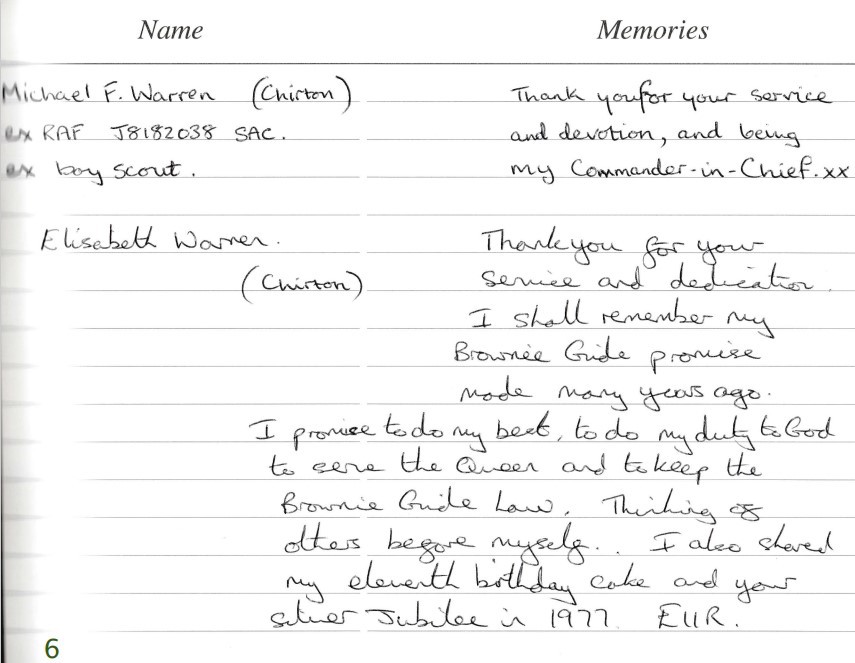 Name Memories
Michael F. Warren (Chirton)
ex RAF J8182038 SAC.
ex boy scout.
Thank you for your service
and devotion, and being
my Commander-in-Chief. xx
Elisabeth Warren.
(Chirton)
Thank you for your
service and dedication.
I shall remember my
Brownie Guide promise
made many years ago.
I promise to do my best, to do my duty to God
to serve the Queen and to keep the
Brownie Guide Law. Thinking of
others before myself.. I also shared
my eleventh birthday cake and your
silver Jubilee in 1977. EIIR.
6